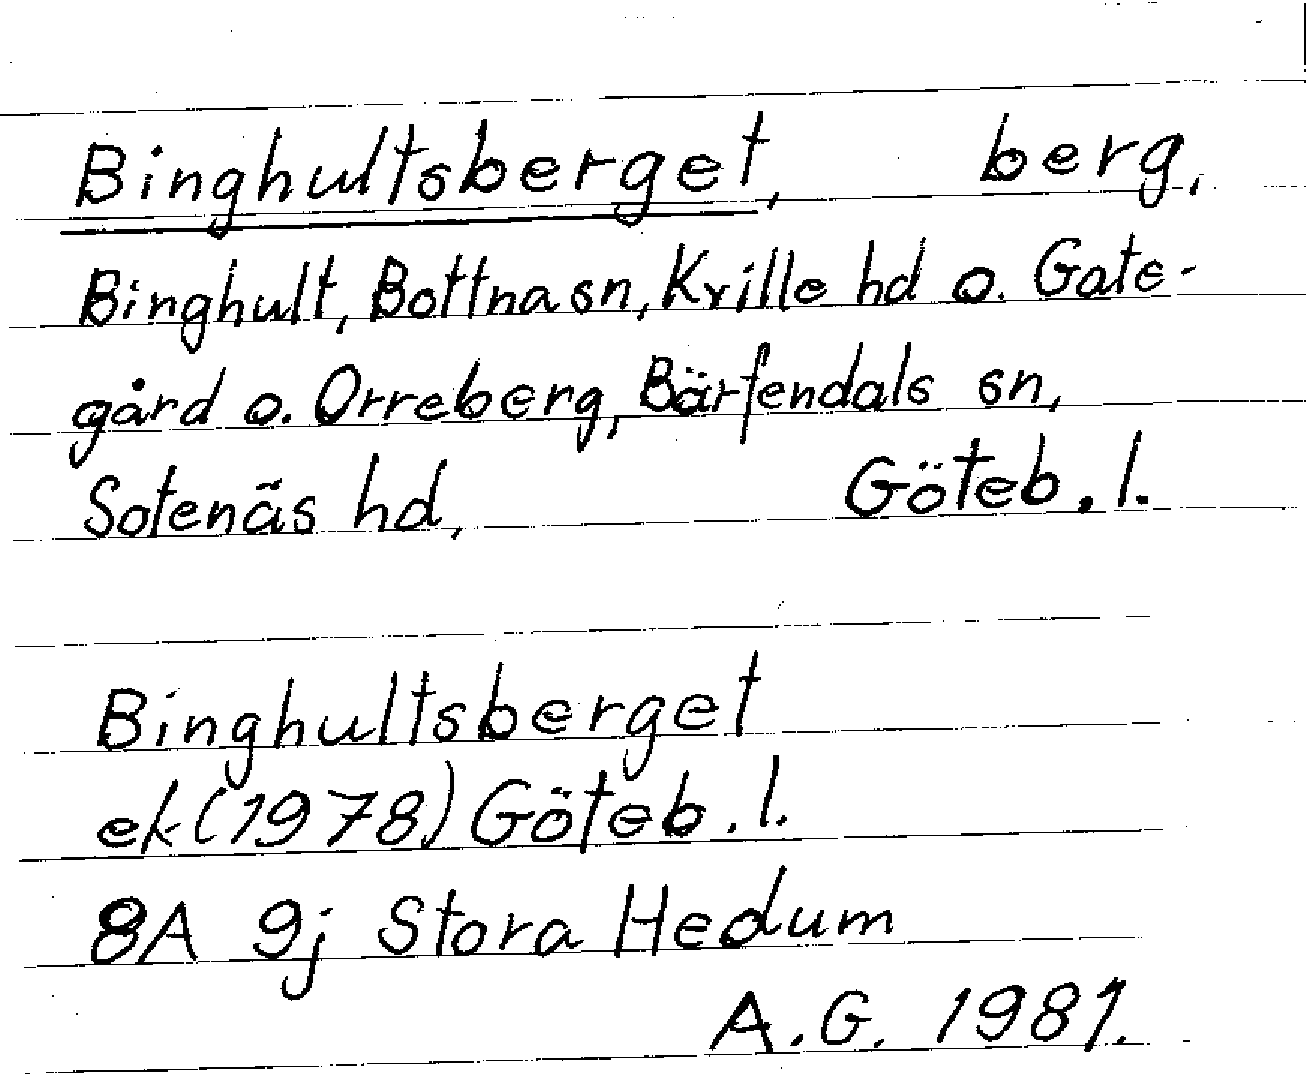 Binghultsberget, berg,
Binghult, Bottna sn, Kville hd o. Gate-
gård o. Orreberg, Bärfendals sn,
Sotenäs hd, Göteb. l.
Binghultsberget
ek (1978) Göteb. l.
8A 9j Stora Hedum
A.G. 1981.